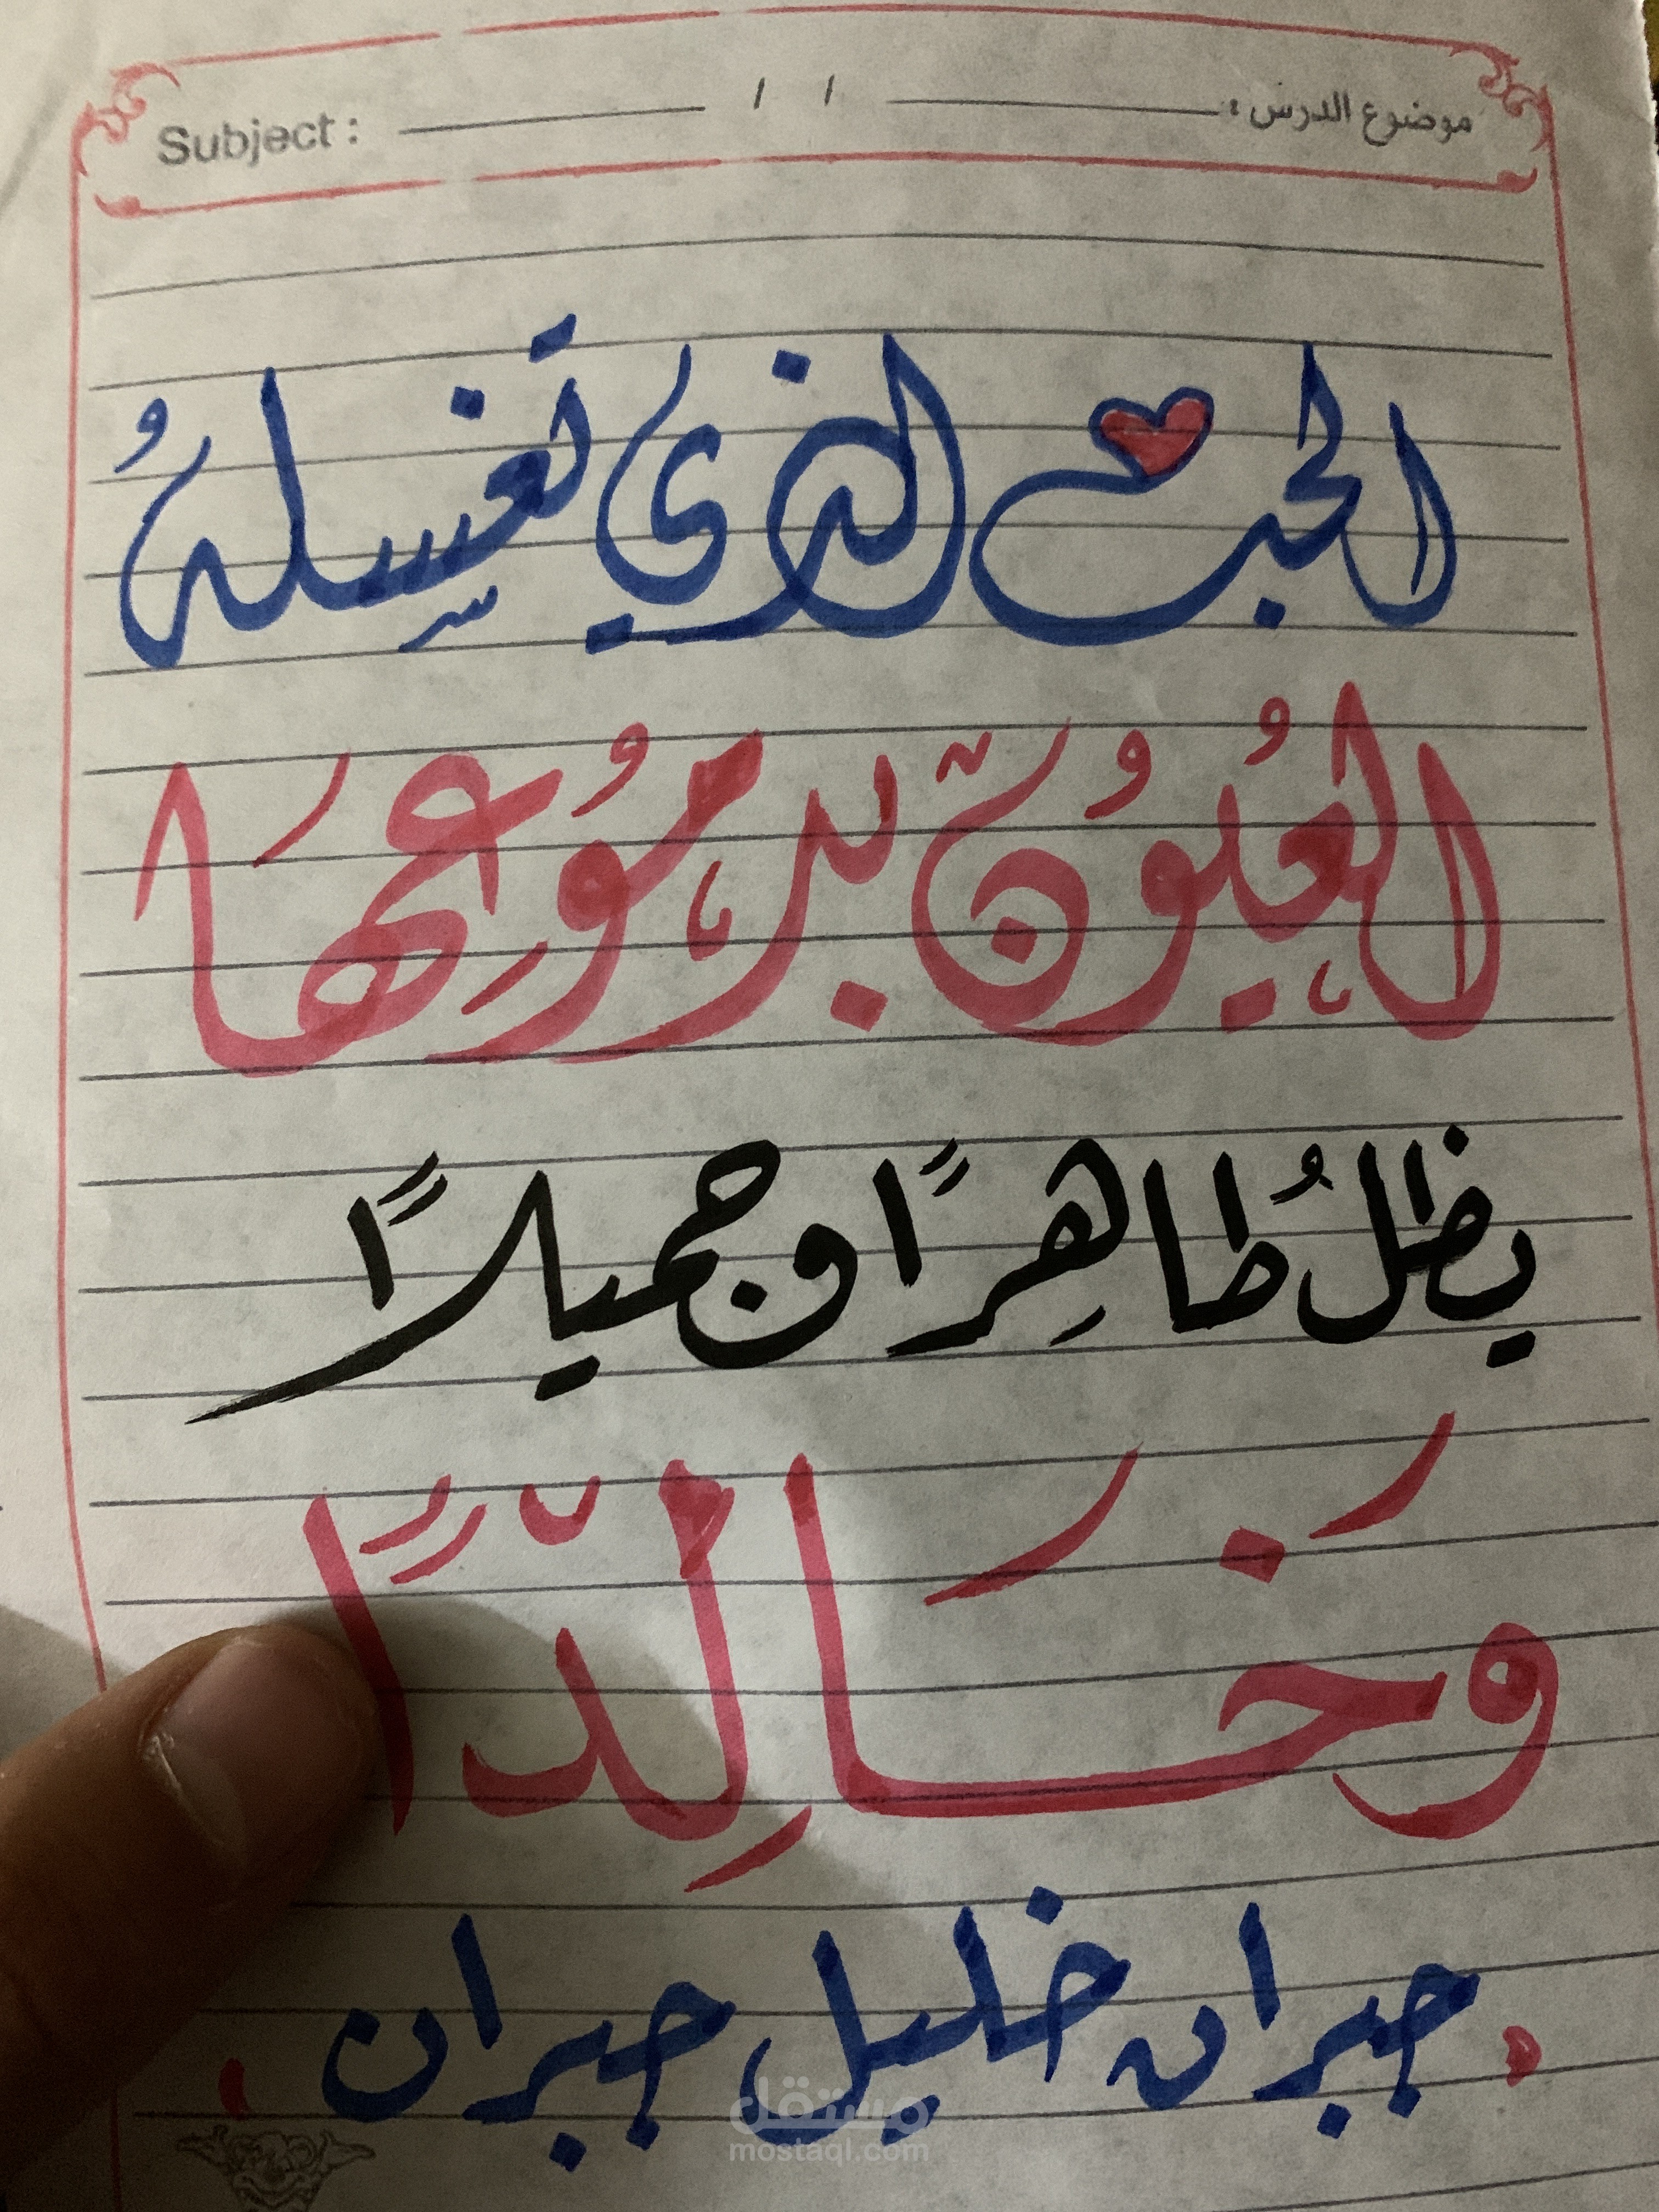 Subject : / / موضوع الدرس :
الحب الذي تغسِلهُ
العُيُونُ بدمُوعِهَا
يظلُ طاهِرًا وجميلًا
وَخَالِدًّا
جبران خليل جبران
مستقل
mostaql.com